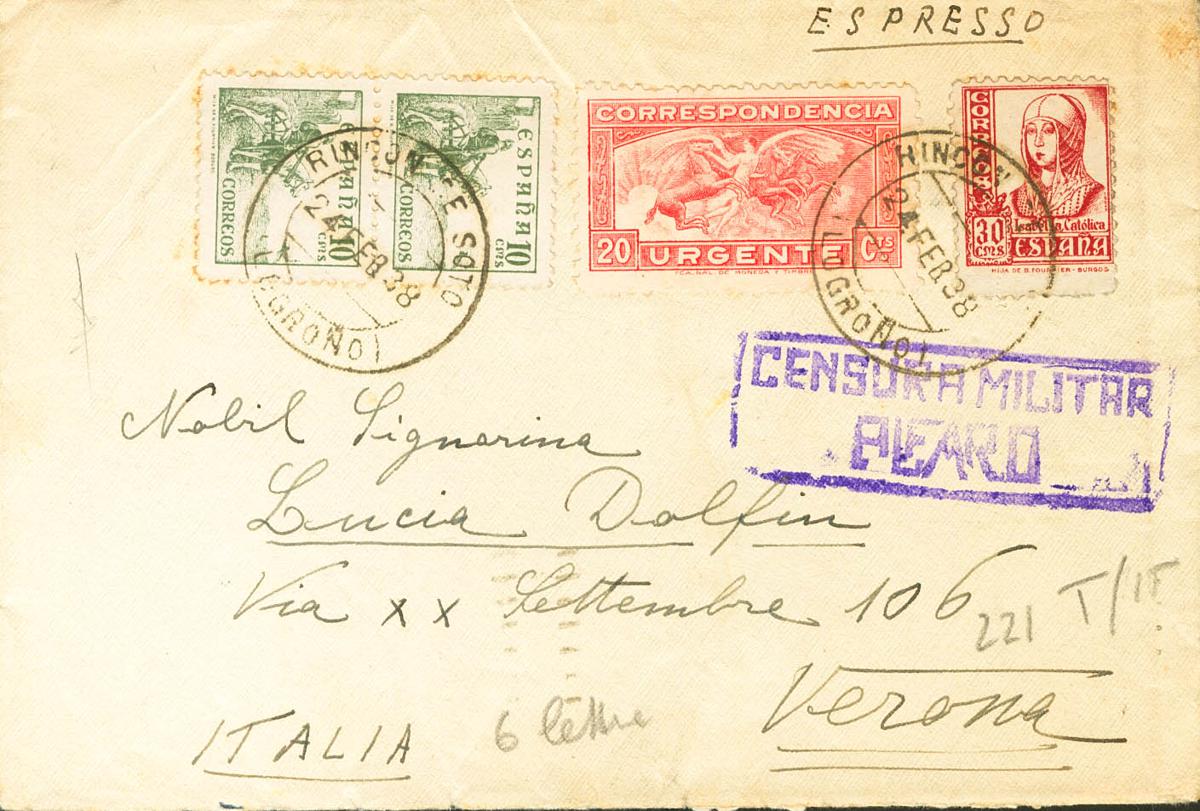 ESPRESSO
ESPAÑA
CORREOS
10
CTMS
ESPAÑA
CORREOS
10
CTMS
CORRESPONDENCIA
20 URGENTE Cts
CORREOS
30
CTMS
Isabel la Católica
ESPAÑA
HIJA DE B. FOURNIER - BURGOS
RINCON DE SOTO
24 FEB 38
(LOGROÑO)
RINCON
24 FEB 38
(LOGROÑO)
CENSURA MILITAR
ALFARO
Nobil Signorina
Lucia Dolfin
Via XX Settembre 106
221 T/15
Verona
ITALIA
6 lettre